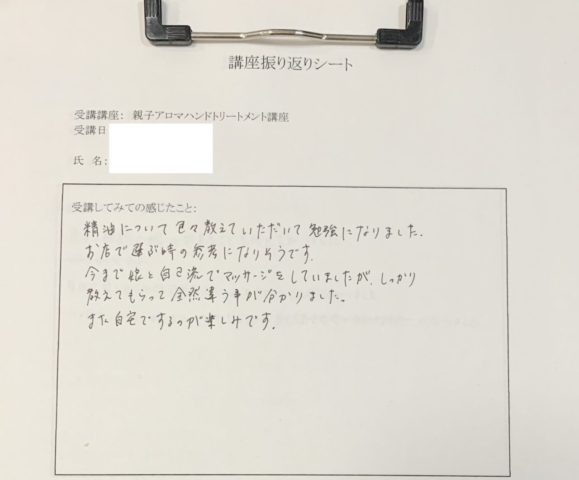 講座振り返りシート
受講講座： 親子アロマハンドトリートメント講座
受講日
氏 名：
受講してみての感じたこと：
精油について色々教えていただいて勉強になりました。
お店で選ぶ時の参考になりそうです。
今まで娘と自己流でマッサージをしていましたが、しっかり
教えてもらって全然違う事が分かりました。
また自宅でするのが楽しみです。